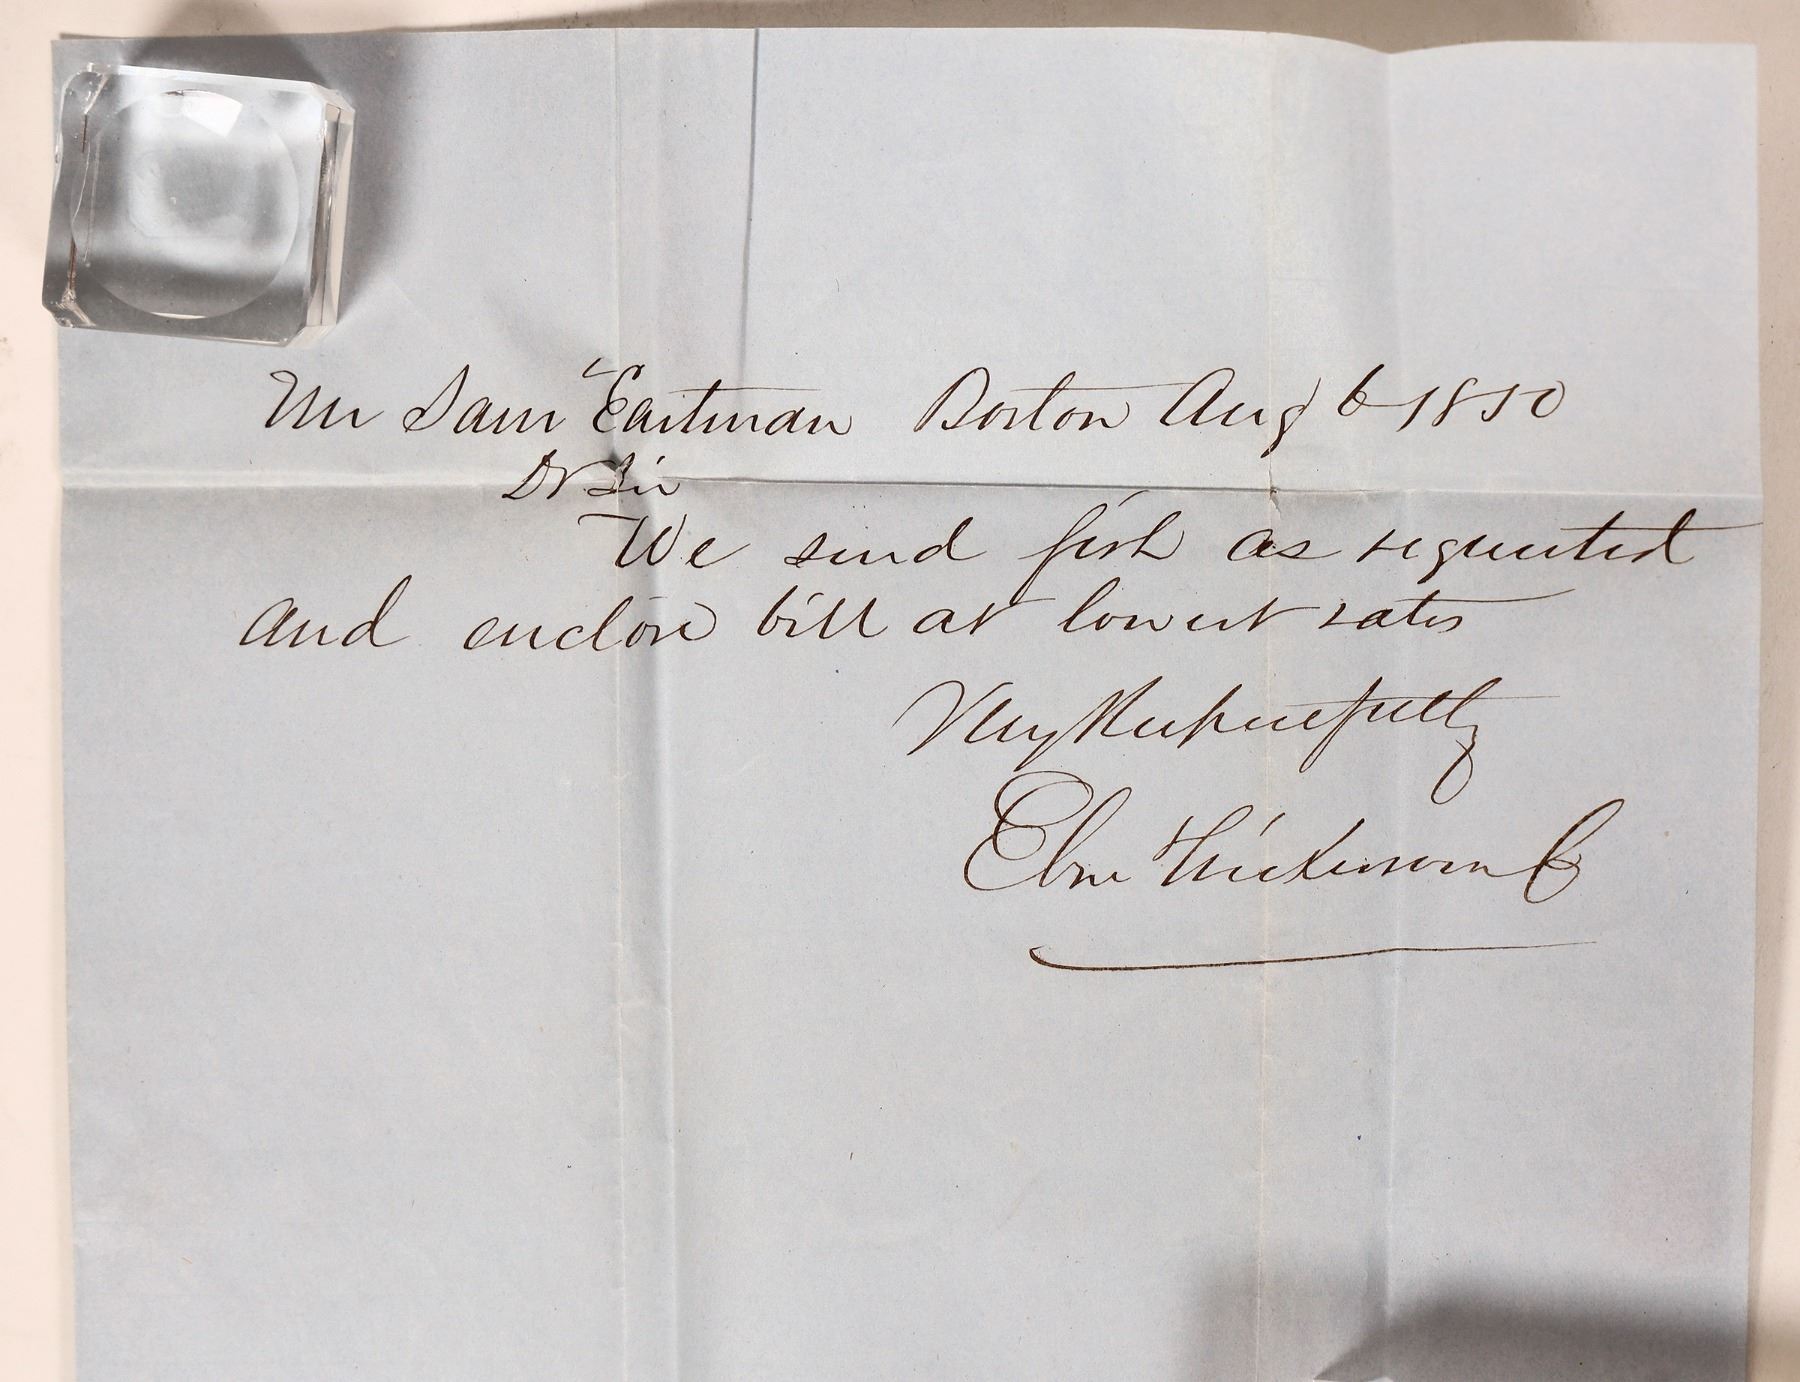 Mr Sam Eastman Boston Aug 6 1850
Dr Sir
We send fish as requested
and enclose bill at lowest rates
Very Respectfully
Eben Nickerson & Co